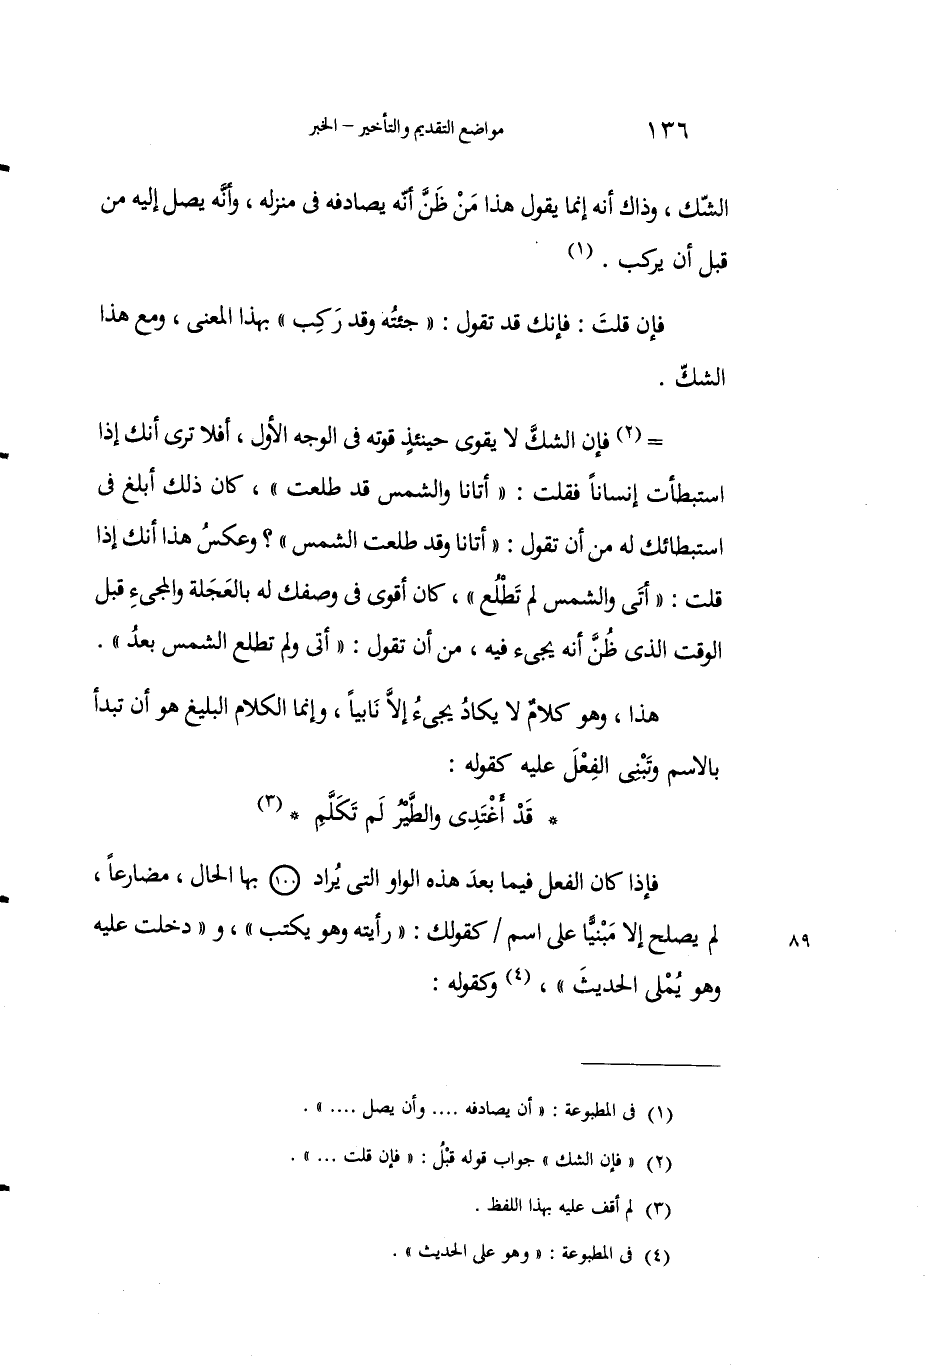 ١٣٦ مواضع التقديم والتأخير – الخبر
الشّك ، وذاك أنه إنما يقول هذا مَنْ ظَنَّ أنّه يصادفه فى منزله ، وأنَّه يصل إليه من
قبل أن يركب . (١)
فإن قلتَ : فإنك قد تقول : « جئتُه وقد رَكِب » بهذا المعنى ، ومع هذا
الشكّ .
= (٢) فإن الشكَّ لا يقوى حينئذٍ قوته فى الوجه الأول ، أفلا ترى أنك إذا
استبطأت إنساناً فقلت : « أتانا والشمس قد طلعت » ، كان ذلك أبلغ فى
استبطائك له من أن تقول : « أتانا وقد طلعت الشمس » ؟ وعكسُ هذا أنك إذا
قلت : « أتَى والشمس لم تَطْلُع » ، كان أقوى فى وصفك له بالعَجَلة والمجىءِ قبل
الوقت الذى ظُنَّ أنه يجىء فيه ، من أن تقول : « أتى ولم تطلع الشمس بعدُ » .
هذا ، وهو كلامٌ لا يكادُ يجىءُ إلاَّ نَابياً ، وإنما الكلام البليغ هو أن تبدأ
بالاسم وتَبْنِى الفِعْلَ عليه كقوله :
* قَدْ أَغْتَدِى والطَّيْرُ لَم تَكَلَّمِ * (٣)
فإذا كان الفعل فيما بعدَ هذه الواو التى يُراد (١٠٠) بها الحال ، مضارعاً ،
لم يصلح إلا مَبْنيًّا على اسم / كقولك : « رأيته وهو يكتب » ، و « دخلت عليه ٨٩
وهو يُمْلى الحديثَ » ، (٤) وكقوله :
(١) فى المطبوعة : « أن يصادفه .... وأن يصل .... » .
(٢) « فإن الشك » جواب قوله قبْلُ : « فإن قلت ... » .
(٣) لم أقف عليه بهذا اللفظ .
(٤) فى المطبوعة : « وهو على الحديث » .